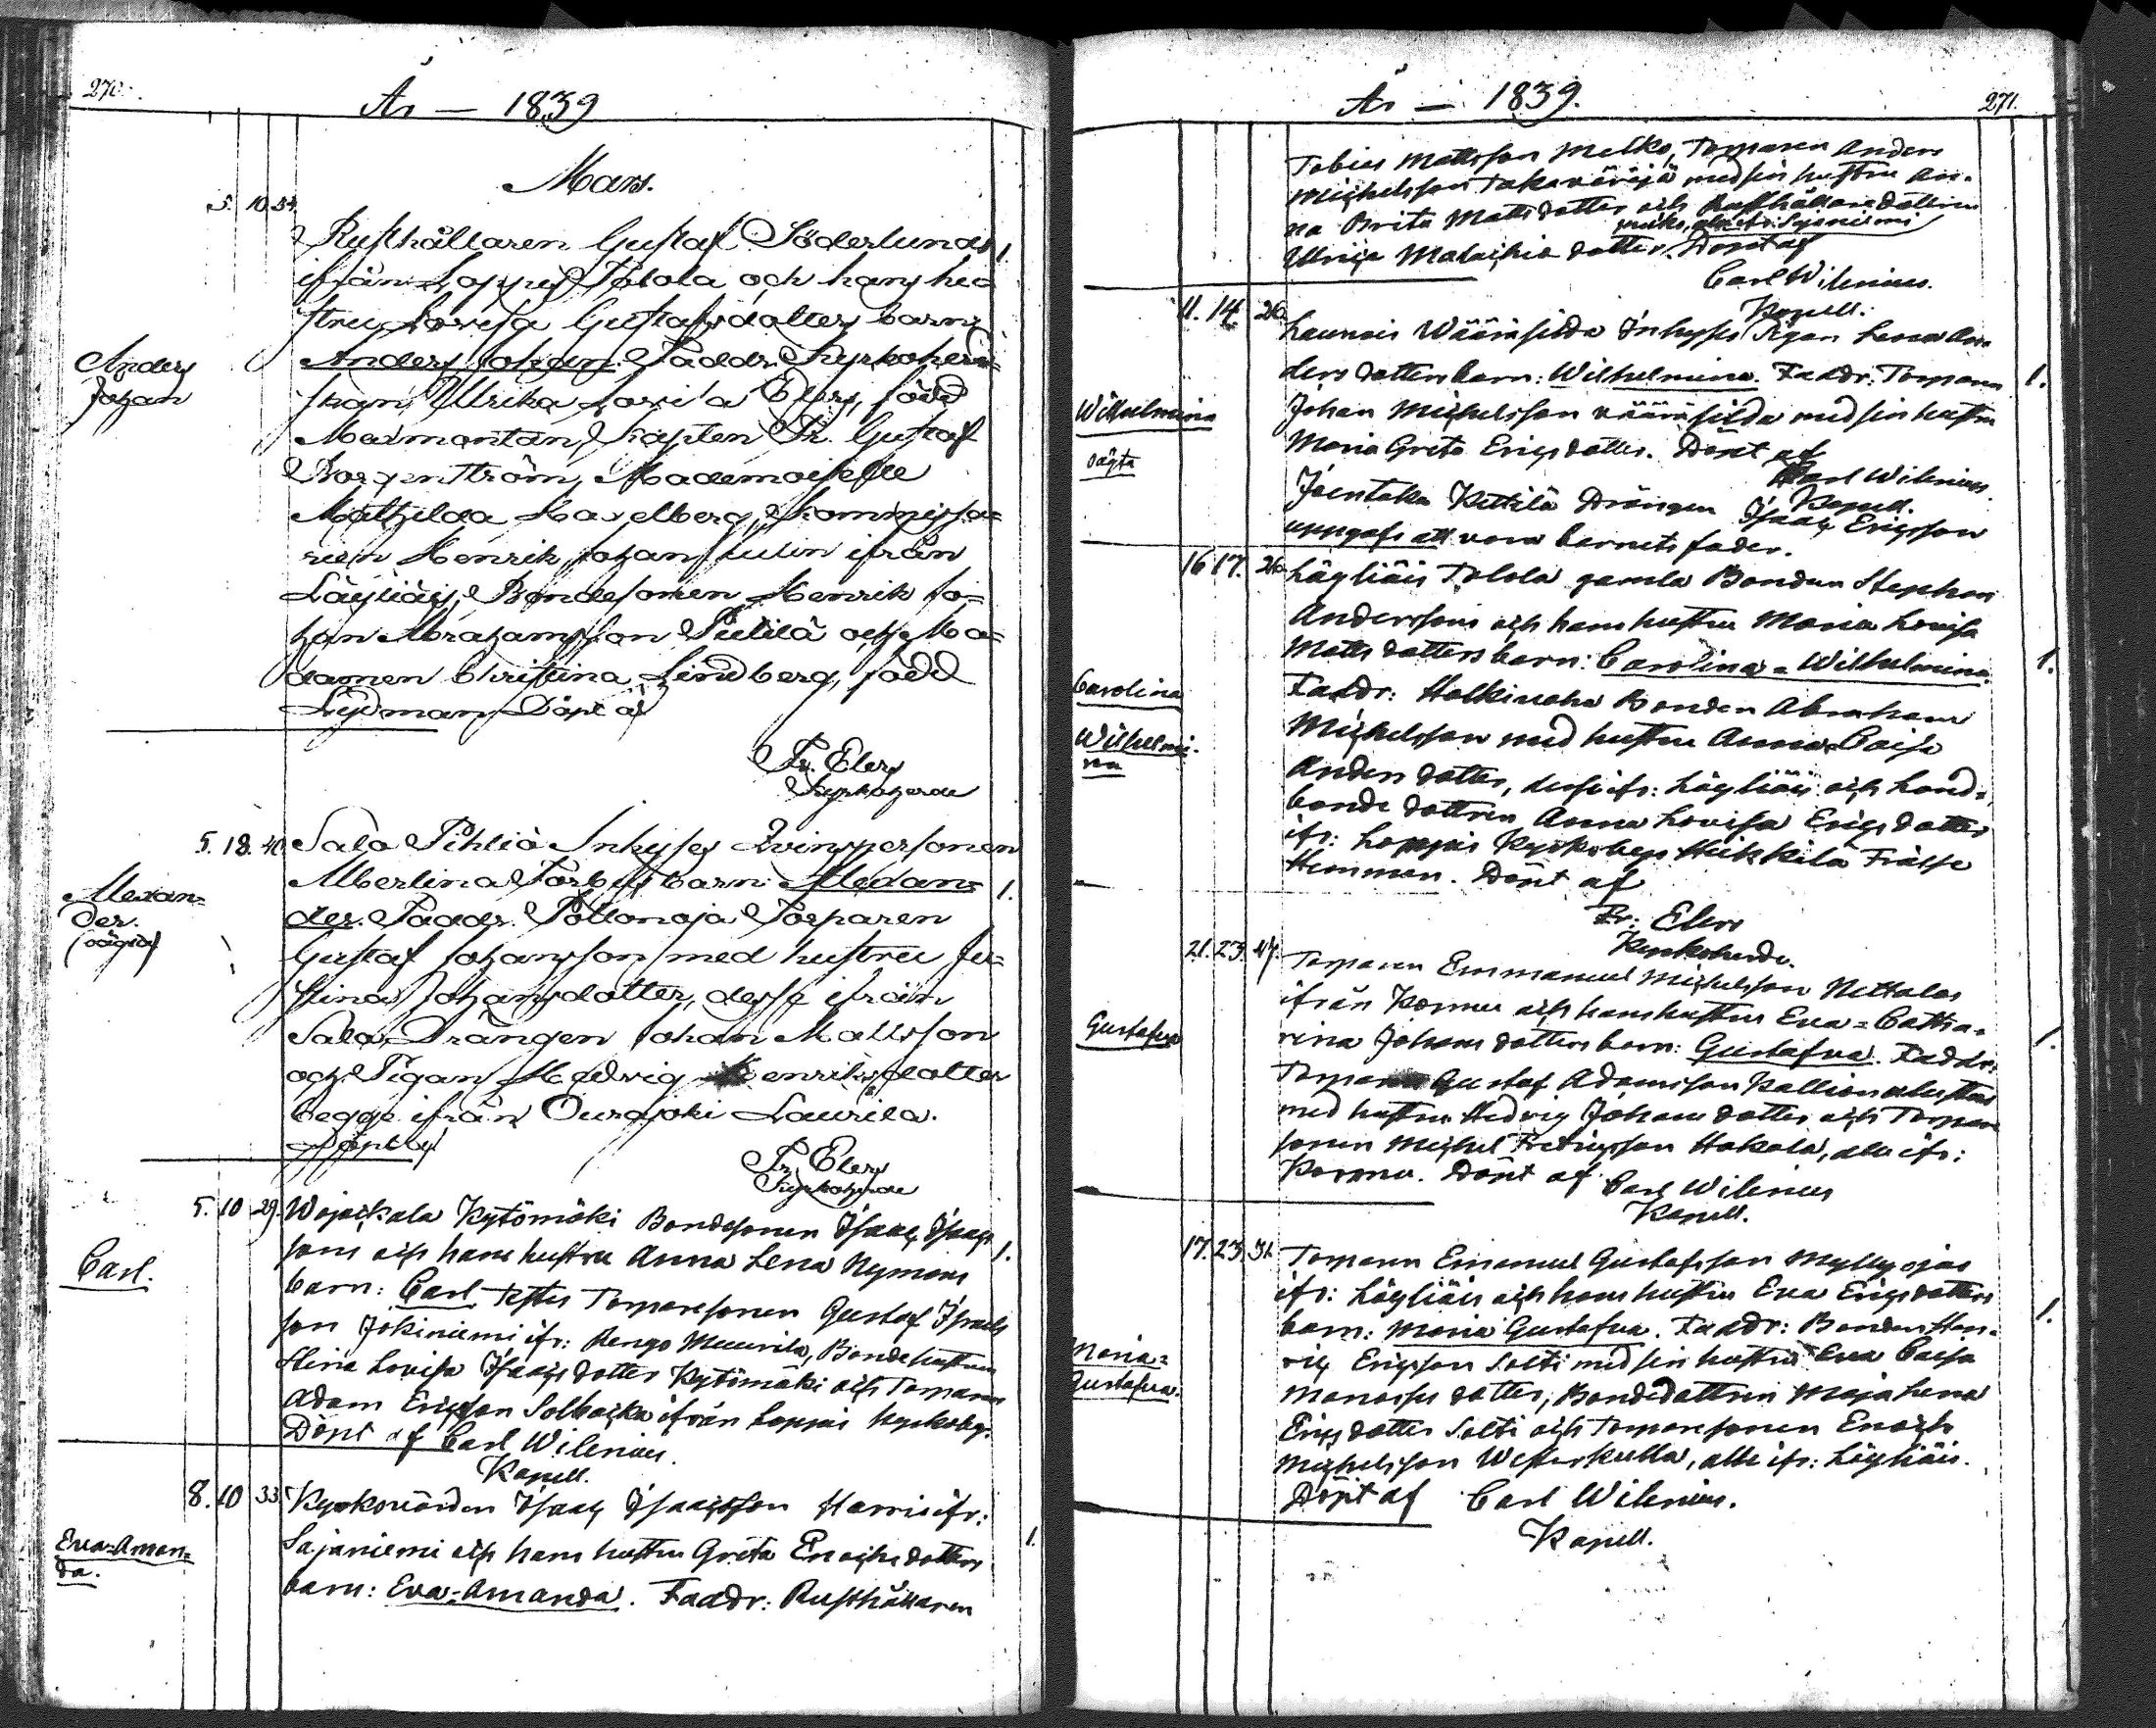 270.
År — 1839
Mars.
5. 10. 34.
Rusthållaren Gustaf Söderlunds 1.
ifrån Loppis Tolola och hans hu=
stru Lovisa Gustafsdotters barn:
Anders Johan
Anders Johan. Faddr. Kyrkoherde=
skan, Ulrika Lovisa Elers, född
Malmontan, Kapten Fr. Gustaf
Borgenström, Mademoiselle
Mathilda Hasselberg, Kommissa=
rien Henrik Johan Julin ifrån
Läyliäis, Bondesonen Henrik Jo=
han Abrahamsson Pietilä och Ma=
damen Christina Lindberg, född
Lydman Döpt af
Fr. Elers
Kyrkoherde
5. 18. 40. Sala Pihliö Inhyses Qvinspersonen
Alexan=
der.
(oägta)
Albertina Forbus barn: Alexan= 1.
der. Faddr. Pollonoja Torparen
Gustaf Johansson med hustru Ju=
stina Johansdotter, desse ifrån
Sala, Drängen Johan Mattsson
och Pigan Hedvig Henriksdotter
begge ifrån Ourajoki Laurila.
Döpt af
Fr. Elers
Kyrkoherde
5. 10 29. Wojackala Kytömäki Bondesonen Isaac Isaacs
Carl.
sons och hans hustru Anna Lena Nymans 1.
barn: Carl Testes Torparesonen Gustaf Israels
son Jokiniemi ifr: Rengo Muurila, Bondehustrun
Stina Lovisa Isaacsdotter Kytömäki och Torparen
Adam Ericsson Solbacka ifrån Loppis Kyrkoby.
Döpt af Carl Wilenius.
Kapell.
8. 10 33 Kyrkovärden Isaac Isaacsson Harris ifr:
Eva=Aman=
da.
Sajaniemi och hans hustru Greta Enochsdotters 1.
barn: Eva=Amanda. Faddr: Rusthållaren
År — 1839.
271.
Tobias Mattsson Melko, Torparen Anders
Michelsson Takavärijä med sin hustru An=
na Brita Mattsdotter och Rusthållaredottren
alla ifr. Sajaniemi
Ulrica Malachiædotter. Döpt af
Carl Wilenius.
Kapell.
11. 14. 26. Launois Wääräsilda Inhyses Pigan Lena An=
ders dotters barn: Wilhelmina. Faddr: Torparen 1.
Wilhelmina
oägta
Johan Michelsson wääräsilda med sin hustru
Maria Greta Ericsdotter. Döpt af
Carl Wilenius.
Kapell.
Joentaka Kettilä Drängen Isaac Ericsson
uppgafs att vara barnets fader.
16 17. 26. Läyliäis Tolola gamla Bonden Stephan
Anderssons och hans hustru Maria Lovisa
Matts dotters barn: Carolina=Wilhelmina. 1.
Carolina
Wilhelmi=
na
Faddr: Holkinoha Bonden Abraham
Michelsson med hustru Anna=Caisa
Andersdotter, desse ifr: Läyliäis och Land=
bonde dottren Anna Lovisa Ericsdotter
ifr: Loppis Kyrkobys Heikkilä Frälse
Hemman. Döpt af
Fr: Elers
Kyrkoherde.
21. 23. 47. Torparen Emmanuel Michelsson Nettalas
Gustafva
ifrån Kormu och hans hustru Eva=Catha=
rina Johansdotters barn: Gustafva. Faddr: 1.
Torparen Gustaf Adamsson Kallionalustas
med hustru Hedvig Johansdotter och Torpare
sonen Michel Fredricsson Hakala, alle ifr:
Kormu. Döpt af Carl Wilenius
Kapell.
17. 23. 31. Torparen Emanuel Gustafsson Myllyojas
ifr: Läyliäis och hans hustru Eva Ericsdotters
barn: Maria Gustafva. Faddr: Bonden Hen= 1.
Maria=
Gustafva.
ric Ericsson Solti med sin hustru Eva Caisa
Manassesdotter, Bondedottren Maja Lena
Ericsdotter Solti och Torparesonen Enoch
Michelsson Westerkulla, alle ifr: Läyliäis.
Döpt af Carl Wilenius.
Kapell.